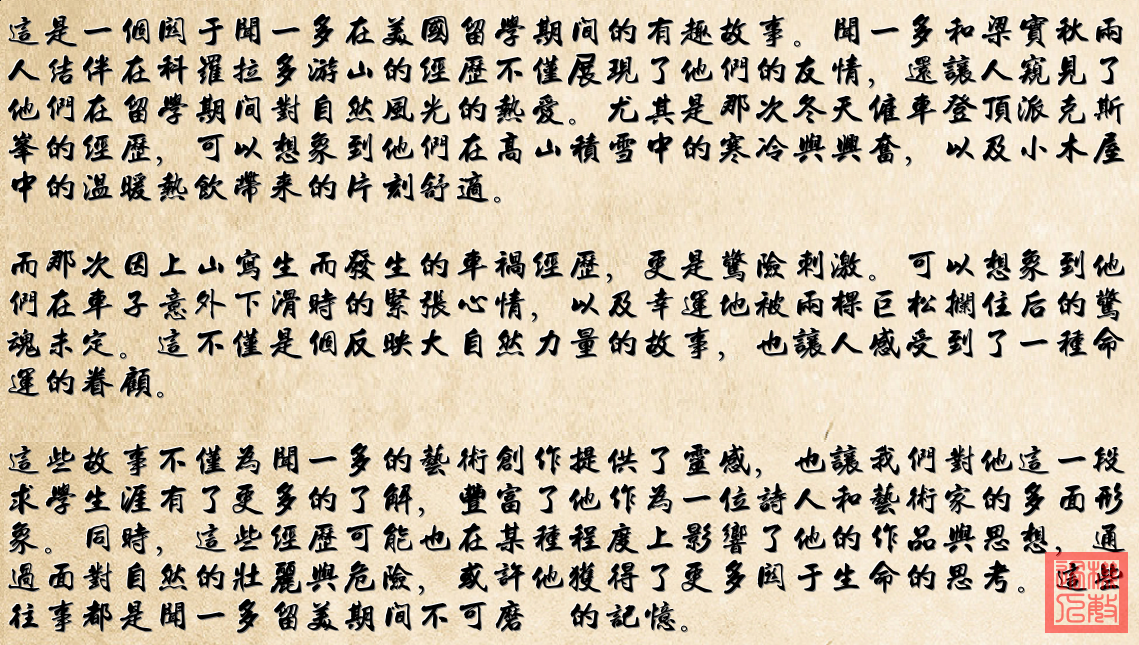 這是一個関于聞一多在美國留學期间的有趣故事。聞一多和梁實秋兩
人結伴在科羅拉多游山的經歷不僅展現了他們的友情，還讓人窺見了
他們在留學期间對自然風光的熱愛。尤其是那次冬天僱車登頂派克斯
峯的經歷，可以想象到他們在高山積雪中的寒冷與興奮，以及小木屋
中的温暖熱飲帶来的片刻舒適。
而那次因上山寫生而發生的車禍經歷，更是驚險刺激。可以想象到他
們在車子意外下滑時的緊張心情，以及幸運地被兩棵巨松攔住后的驚
魂未定。這不僅是個反映大自然力量的故事，也讓人感受到了一種命
運的眷顧。
這些故事不僅為聞一多的藝術創作提供了靈感，也讓我們對他這一段
求學生涯有了更多的了解，豐富了他作為一位詩人和藝術家的多面形
象。同時，這些經歷可能也在某種程度上影響了他的作品與思想，通
過面對自然的壯麗與危險，或許他獲得了更多関于生命的思考。這些
往事都是聞一多留美期间不可磨　的記憶。